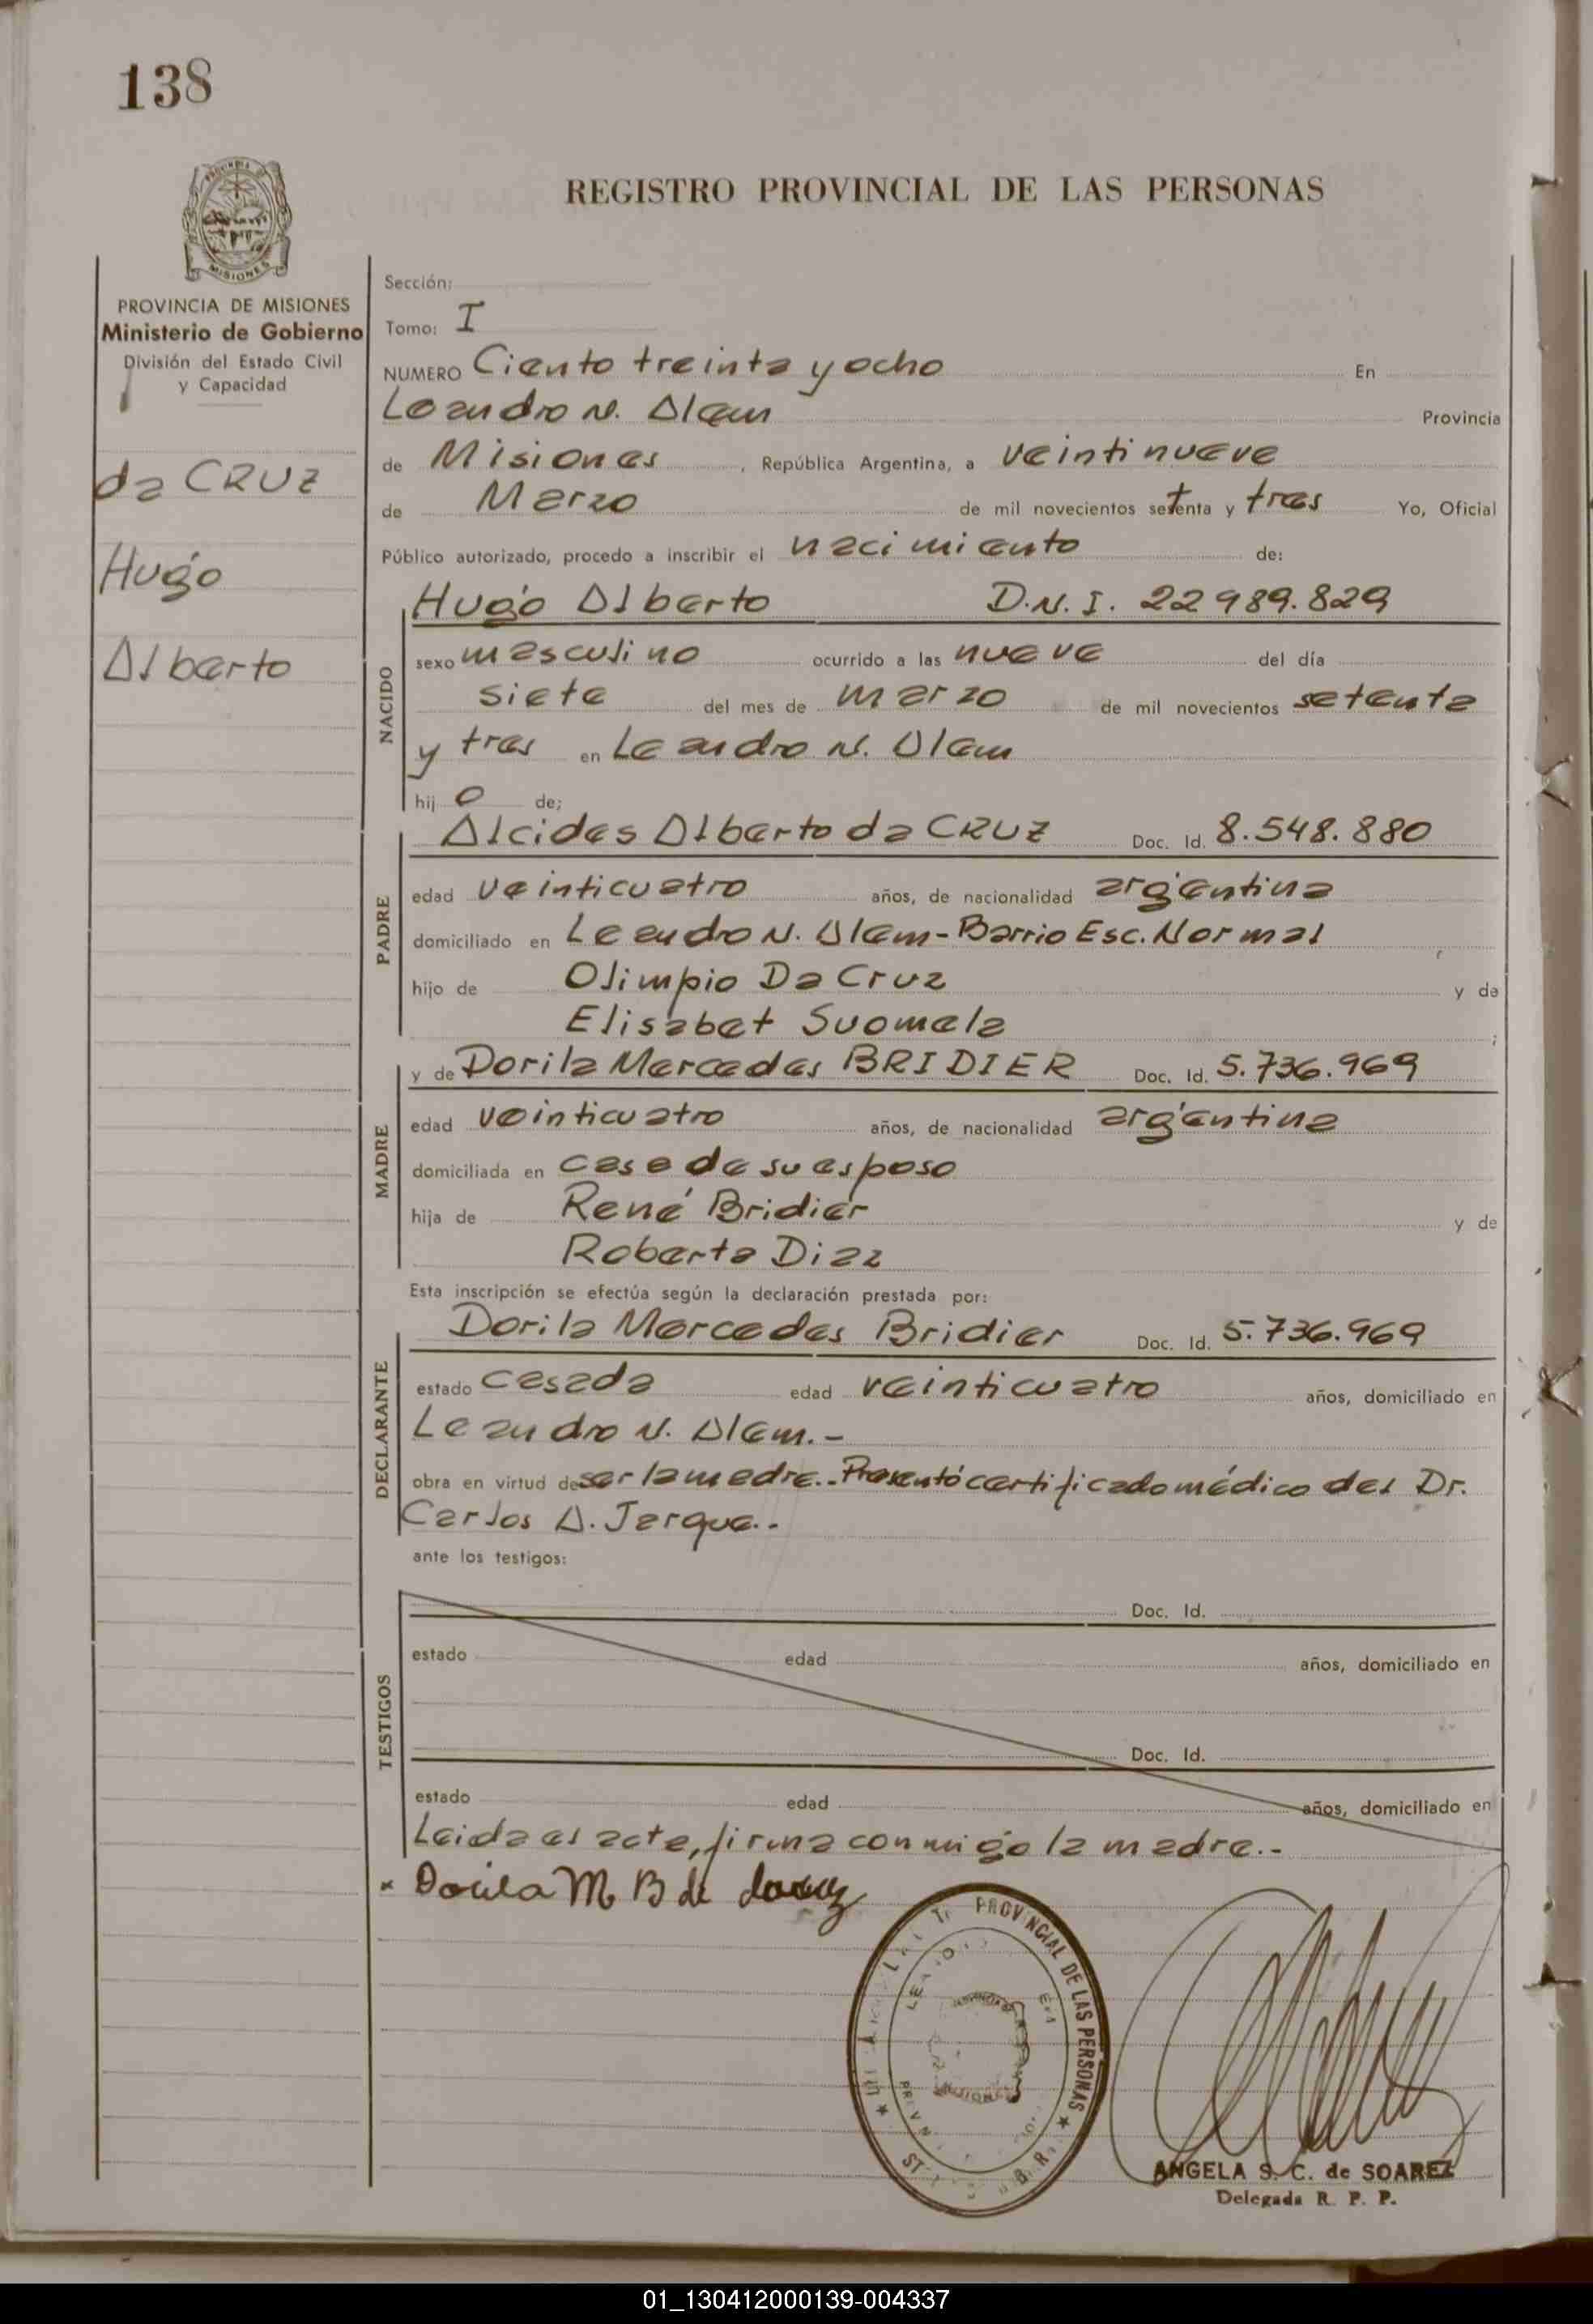 138
REGISTRO PROVINCIAL DE LAS PERSONAS
MISIONES
PROVINCIA DE MISIONES
Ministerio de Gobierno
División del Estado Civil
y Capacidad
da CRUZ
Hugo
Alberto
Sección:
Tomo: I
NUMERO Ciento treinta y ocho En
Leandro N. Alem Provincia
de Misiones, República Argentina, a veintinueve
de Marzo de mil novecientos setenta y tres Yo, Oficial
Público autorizado, procedo a inscribir el nacimiento de:
NACIDO
Hugo Alberto D.N.I. 22989.829
sexo masculino ocurrido a las nueve del día
siete del mes de marzo de mil novecientos setenta
y tres en Leandro N. Alem
hij o de;
PADRE
Alcides Alberto da CRUZ Doc. Id. 8.548.880
edad veinticuatro años, de nacionalidad argentina
domiciliado en Leandro N. Alem-Barrio Esc. Normal
hijo de Olimpio Da Cruz y de
Elisabet Suomela ;
MADRE
y de Dorila Mercedes BRIDIER Doc. Id. 5.736.969
edad veinticuatro años, de nacionalidad argentina
domiciliada en casa de su esposo
hija de René Bridier y de
Roberta Diaz
Esta inscripción se efectúa según la declaración prestada por:
DECLARANTE
Dorila Mercedes Bridier Doc. Id. 5.736.969
estado casada edad veinticuatro años, domiciliado en
Leandro N. Alem.-
obra en virtud de ser la madre.- Presentó certificado médico del Dr.
Carlos A. Jarque.-
ante los testigos:
TESTIGOS
Doc. Id.
estado edad años, domiciliado en
Doc. Id.
estado edad años, domiciliado en
Leida el acta, firma conmigo la madre.-
x Dorila M B de dacruz
PROVINCIAL DE LAS PERSONAS
ANGELA S. C. de SOAREZ
Delegada R. P. P.
01_130412000139-004337